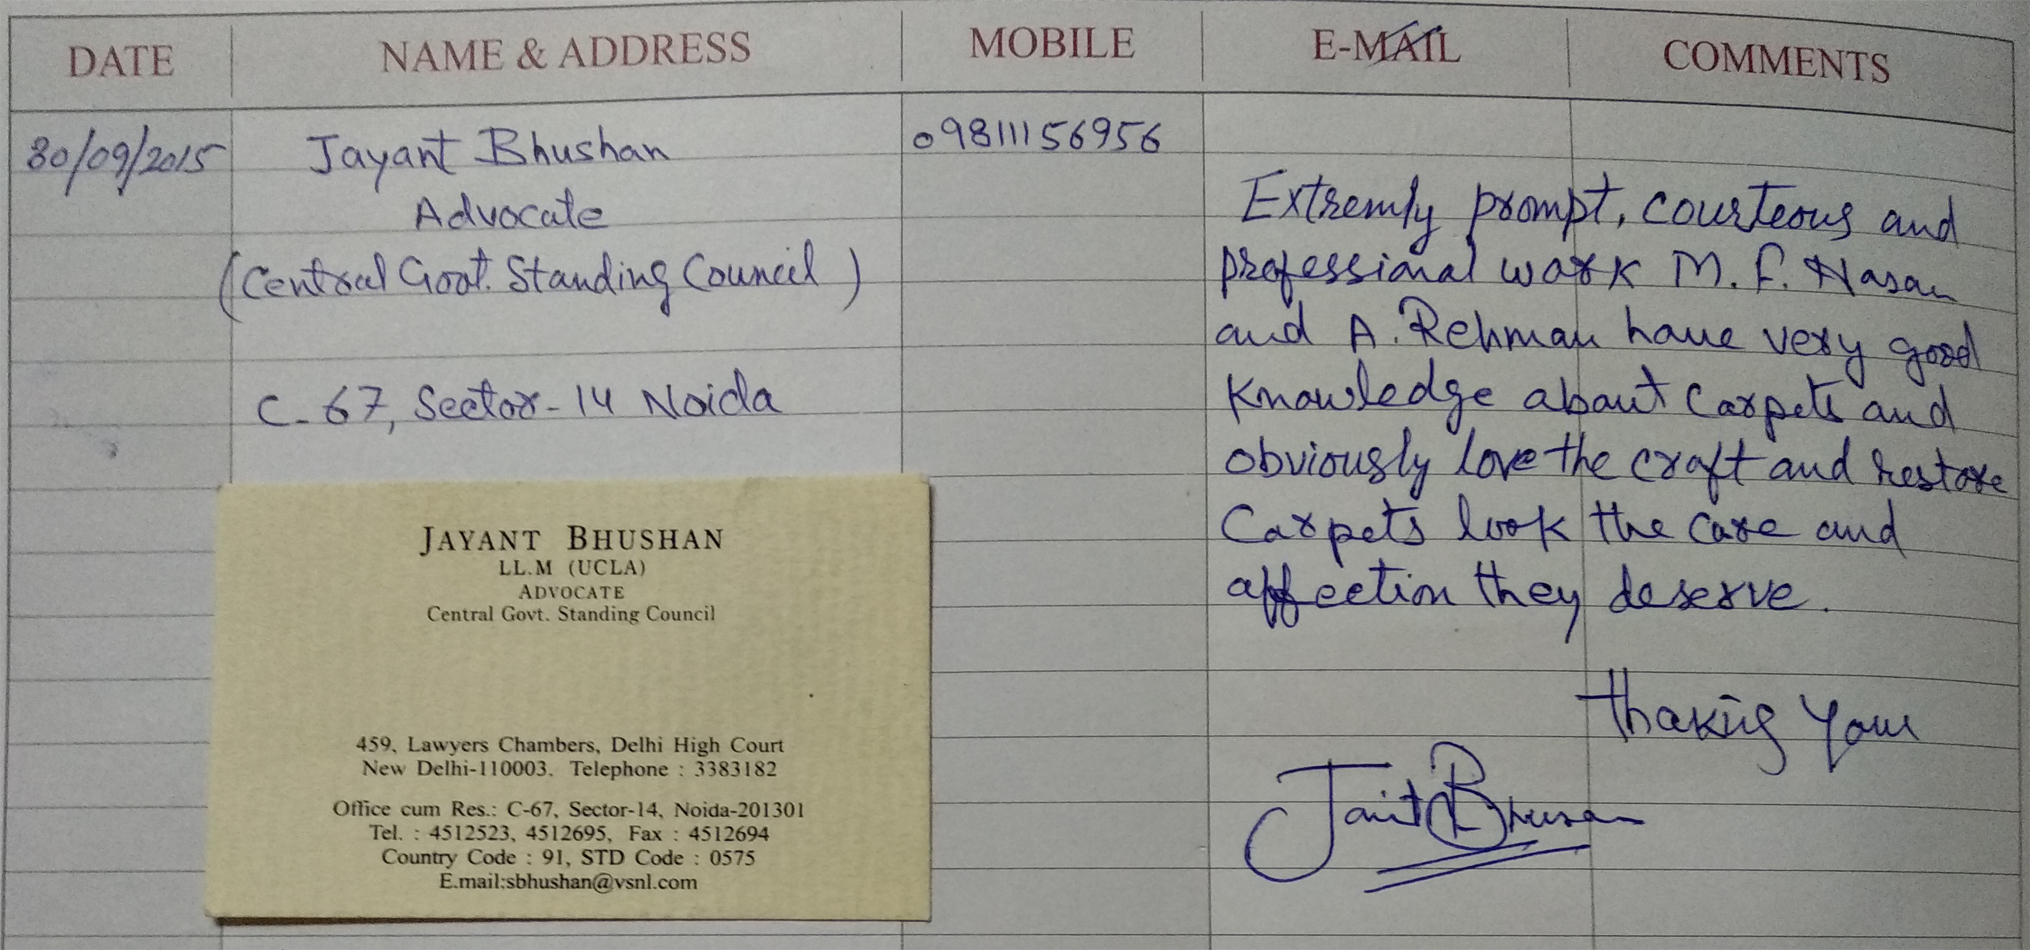 DATE NAME & ADDRESS MOBILE E-MAIL COMMENTS
30/09/2015 Jayant Bhushan 09811156956
Advocate
(Central Govt. Standing Council)
C-67, Sector-14 Noida
Extremly prompt, courteous and
professional work M. F. Hasan
and A. Rehman have very good
Knowledge about Carpets and
obviously love the craft and restore
Carpets look the care and
affection they deserve.
thaking your
Jant Bhusan
JAYANT BHUSHAN
LL.M (UCLA)
ADVOCATE
Central Govt. Standing Council
459, Lawyers Chambers, Delhi High Court
New Delhi-110003. Telephone : 3383182
Office cum Res.: C-67, Sector-14, Noida-201301
Tel. : 4512523, 4512695, Fax : 4512694
Country Code : 91, STD Code : 0575
E.mail:sbhushan@vsnl.com